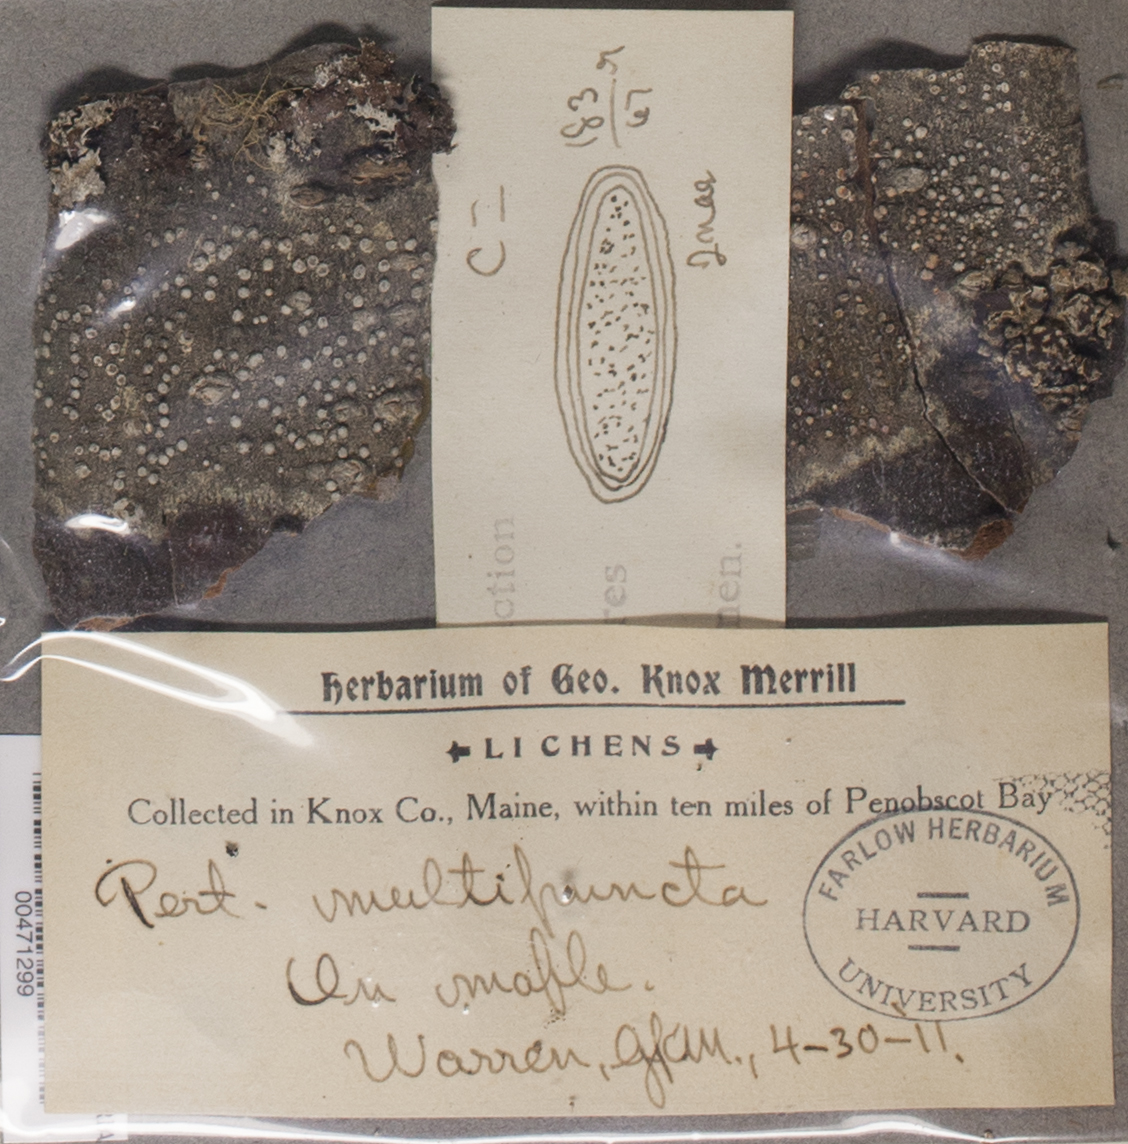 C –
183
67
ction
res
nen.
Herbarium of Geo. Knox Merrill
LICHENS
Collected in Knox Co., Maine, within ten miles of Penobscot Bay
Pert. multipuncta
On maple.
Warren, GKM., 4-30-11.
FARLOW HERBARIUM
HARVARD
UNIVERSITY
00471299